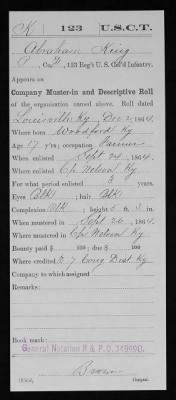 K | 123 | U.S.C.T.
Abraham King
P, Co. , 123 Reg't U.S. Col'd Infantry.
Appears on
Company Muster-in and Descriptive Roll
of the organization named above. Roll dated
Louisville Ky, Dec 2, 1864.
Where born Woodford Ky
Age 17 y'rs; occupation Farmer
When enlisted Sept 24, 1864.
Where enlisted Cp Nelson Ky
For what period enlisted 3 years.
Eyes Blk; hair Blk
Complexion Blk; height 5 ft. 3 in.
When mustered in Sept 26, 1864.
Where mustered in Cp Nelson Ky
Bounty paid $ 100; due $ 100
Where credited 7 Cong Dist Ky
Company to which assigned
Remarks:
Book mark:
General Notation R & P. O.
Brown
Copyist.